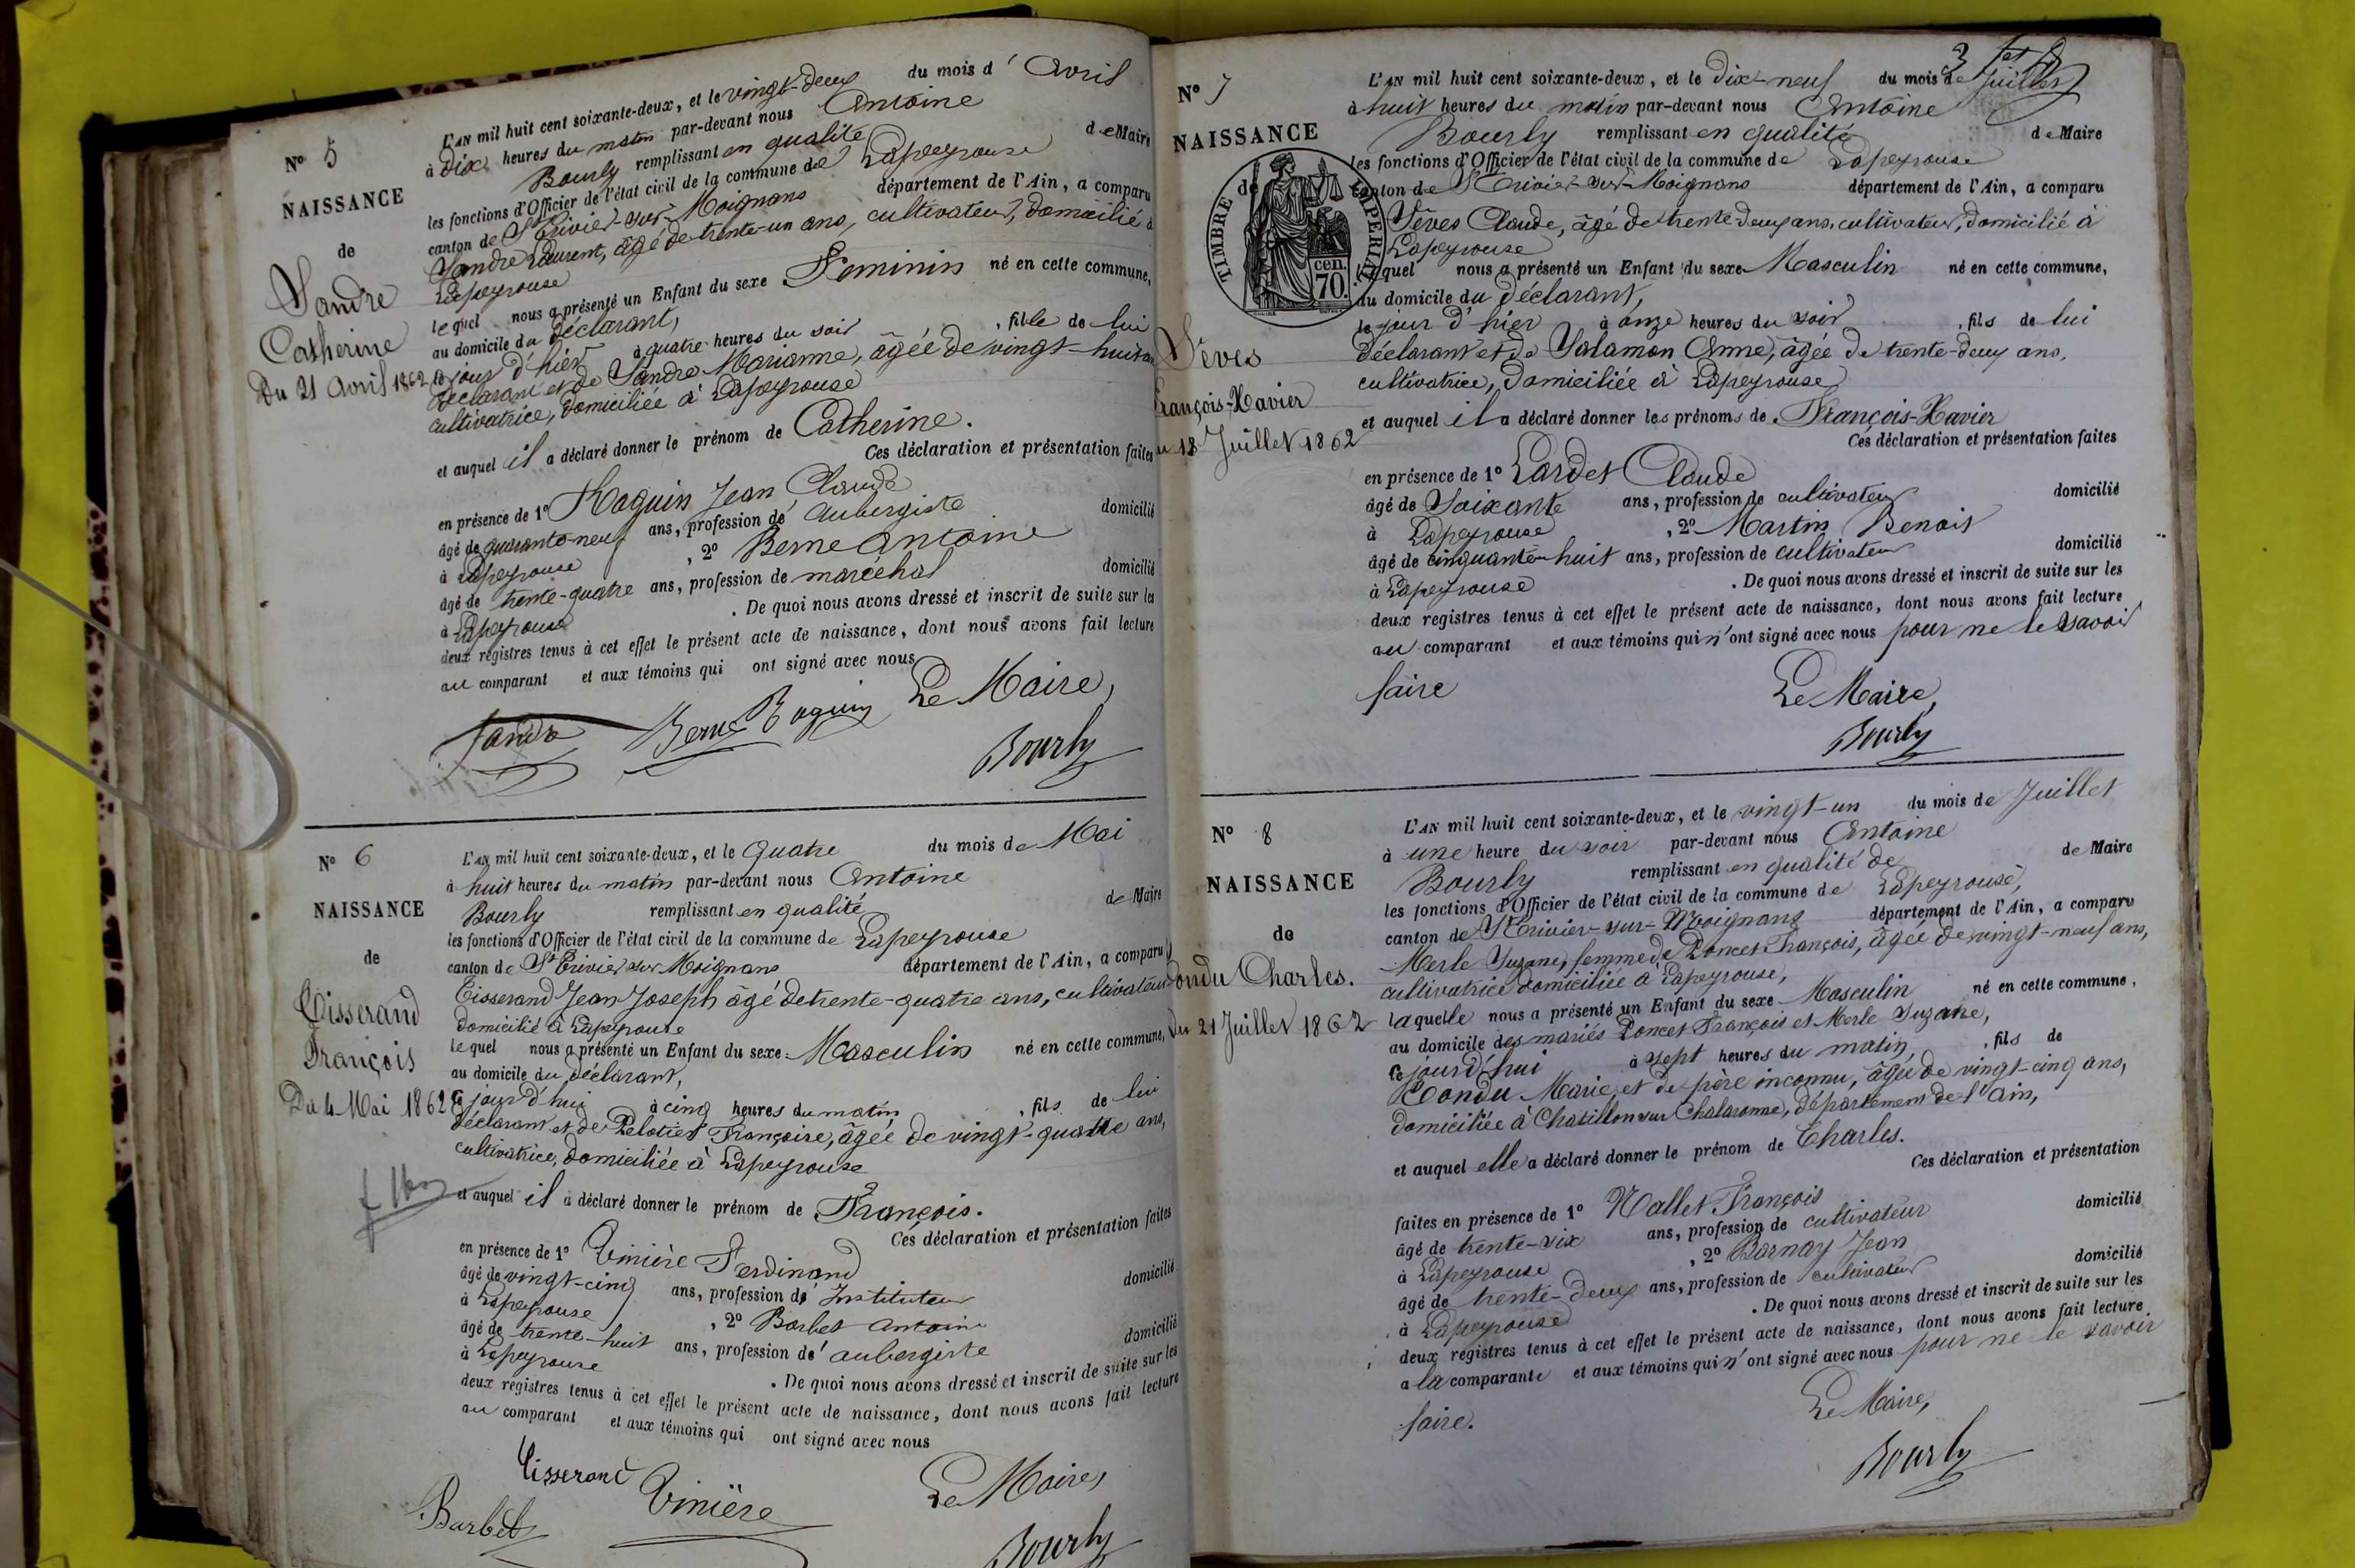 N° 5
NAISSANCE
de
Sandre
Catherine
Du 21 Avril 1862
L'AN mil huit cent soixante-deux, et le vingt-deux du mois d'Avril
à dix heures du matin par-devant nous Antoine
Bourly remplissant en qualité de Maire
les fonctions d'Officier de l'état civil de la commune de Lapeyrouse
canton de St Trivier-sur-Moignans département de l'Ain, a comparu
Sandre Laurent, âgé de trente-un ans, cultivateur, domicilié à
Lapeyrouse
lequel nous a présenté un Enfant du sexe Feminin né en cette commune,
au domicile du déclarant,
le jour d'hier à quatre heures du soir, fille de lui
déclarant et de Sandre Marianne, âgée de vingt-huit ans
cultivatrice, domiciliée à Lapeyrouse
et auquel il a déclaré donner le prénom de Catherine.
Ces déclaration et présentation faites
en présence de 1° Raguin Jean Claude
âgé de quarante-neuf ans, profession d'aubergiste domicilié
à Lapeyrouse, 2° Berne Antoine
âgé de trente-quatre ans, profession de maréchal domicilié
à Lapeyrouse. De quoi nous avons dressé et inscrit de suite sur les
deux registres tenus à cet effet le présent acte de naissance, dont nous avons fait lecture
au comparant et aux témoins qui ont signé avec nous
Le Maire,
Sandre Berne Raguin
Bourly
N° 6
NAISSANCE
de
Tisserand
François
Du 4 Mai 1862
L'AN mil huit cent soixante-deux, et le quatre du mois de Mai
à huit heures du matin par-devant nous Antoine
Bourly remplissant en qualité de Maire
les fonctions d'Officier de l'état civil de la commune de Lapeyrouse
canton de St Trivier sur Moignans département de l'Ain, a comparu
Tisserand Jean Joseph âgé de trente-quatre ans, cultivateur
domicilié à Lapeyrouse
lequel nous a présenté un Enfant du sexe Masculin né en cette commune,
au domicile du déclarant,
ce jourd'hui à cinq heures du matin, fils de lui
déclarant et de Pelotier Françoise, âgée de vingt-quatre ans,
cultivatrice, domiciliée à Lapeyrouse
et auquel il a déclaré donner le prénom de François.
Ces déclaration et présentation faites
en présence de 1° Vinière Ferdinand
âgé de vingt-cinq ans, profession d'Instituteur domicilié
à Lapeyrouse, 2° Barbet Antoine
âgé de trente-huit ans, profession d'aubergiste domicilié
à Lapeyrouse. De quoi nous avons dressé et inscrit de suite sur les
deux registres tenus à cet effet le présent acte de naissance, dont nous avons fait lecture
au comparant et aux témoins qui ont signé avec nous
Tisserand Vinière Le Maire,
Barbet
Bourly
N° 7
NAISSANCE
de
TIMBRE IMPERIAL
70. cen.
Sèves
François-Xavier
18 Juillet 1862
L'AN mil huit cent soixante-deux, et le dix-neuf du mois de Juillet
à huit heures du matin par-devant nous Antoine
Bourly remplissant en qualité de Maire
les fonctions d'Officier de l'état civil de la commune de Lapeyrouse
canton de St Trivier-sur-Moignans département de l'Ain, a comparu
Sèves Claude, âgé de trente-deux ans, cultivateur, domicilié à
Lapeyrouse
lequel nous a présenté un Enfant du sexe Masculin né en cette commune,
au domicile du déclarant,
le jour d'hier à onze heures du soir, fils de lui
déclarant et de Salamon Anne, âgée de trente-deux ans,
cultivatrice, domiciliée à Lapeyrouse
et auquel il a déclaré donner les prénoms de François-Xavier
Ces déclaration et présentation faites
en présence de 1° Lardet Claude
âgé de soixante ans, profession de cultivateur domicilié
à Lapeyrouse, 2° Martin Benoit
âgé de cinquante-huit ans, profession de cultivateur domicilié
à Lapeyrouse. De quoi nous avons dressé et inscrit de suite sur les
deux registres tenus à cet effet le présent acte de naissance, dont nous avons fait lecture
au comparant et aux témoins qui n'ont signé avec nous pour ne le savoir
faire
Le Maire,
Bourly
N° 8
NAISSANCE
de
Condu Charles.
Du 21 Juillet 1862
L'AN mil huit cent soixante-deux, et le vingt-un du mois de Juillet
à une heure du soir par-devant nous Antoine
Bourly remplissant en qualité de de Maire
les fonctions d'Officier de l'état civil de la commune de Lapeyrouse,
canton de St Trivier-sur-Moignans département de l'Ain, a comparu
Merle Suzane, femme de Poncet François, âgée de vingt-neuf ans,
cultivatrice domiciliée à Lapeyrouse,
laquelle nous a présenté un Enfant du sexe Masculin né en cette commune,
au domicile des mariés Poncet François et Merle Suzane,
ce jourd'hui à sept heures du matin, fils de
Condu Marie, et de père inconnu, âgée de vingt-cinq ans,
domiciliée à Chatillon sur Chalaronne, département de l'Ain,
et auquel elle a déclaré donner le prénom de Charles.
Ces déclaration et présentation
faites en présence de 1° Nallet François
âgé de trente-six ans, profession de cultivateur domicilié
à Lapeyrouse, 2° Barnay Jean
âgé de trente-deux ans, profession de cultivateur domicilié
à Lapeyrouse. De quoi nous avons dressé et inscrit de suite sur les
deux registres tenus à cet effet le présent acte de naissance, dont nous avons fait lecture
a la comparante et aux témoins qui n'ont signé avec nous pour ne le savoir
faire.
Le Maire,
Bourly